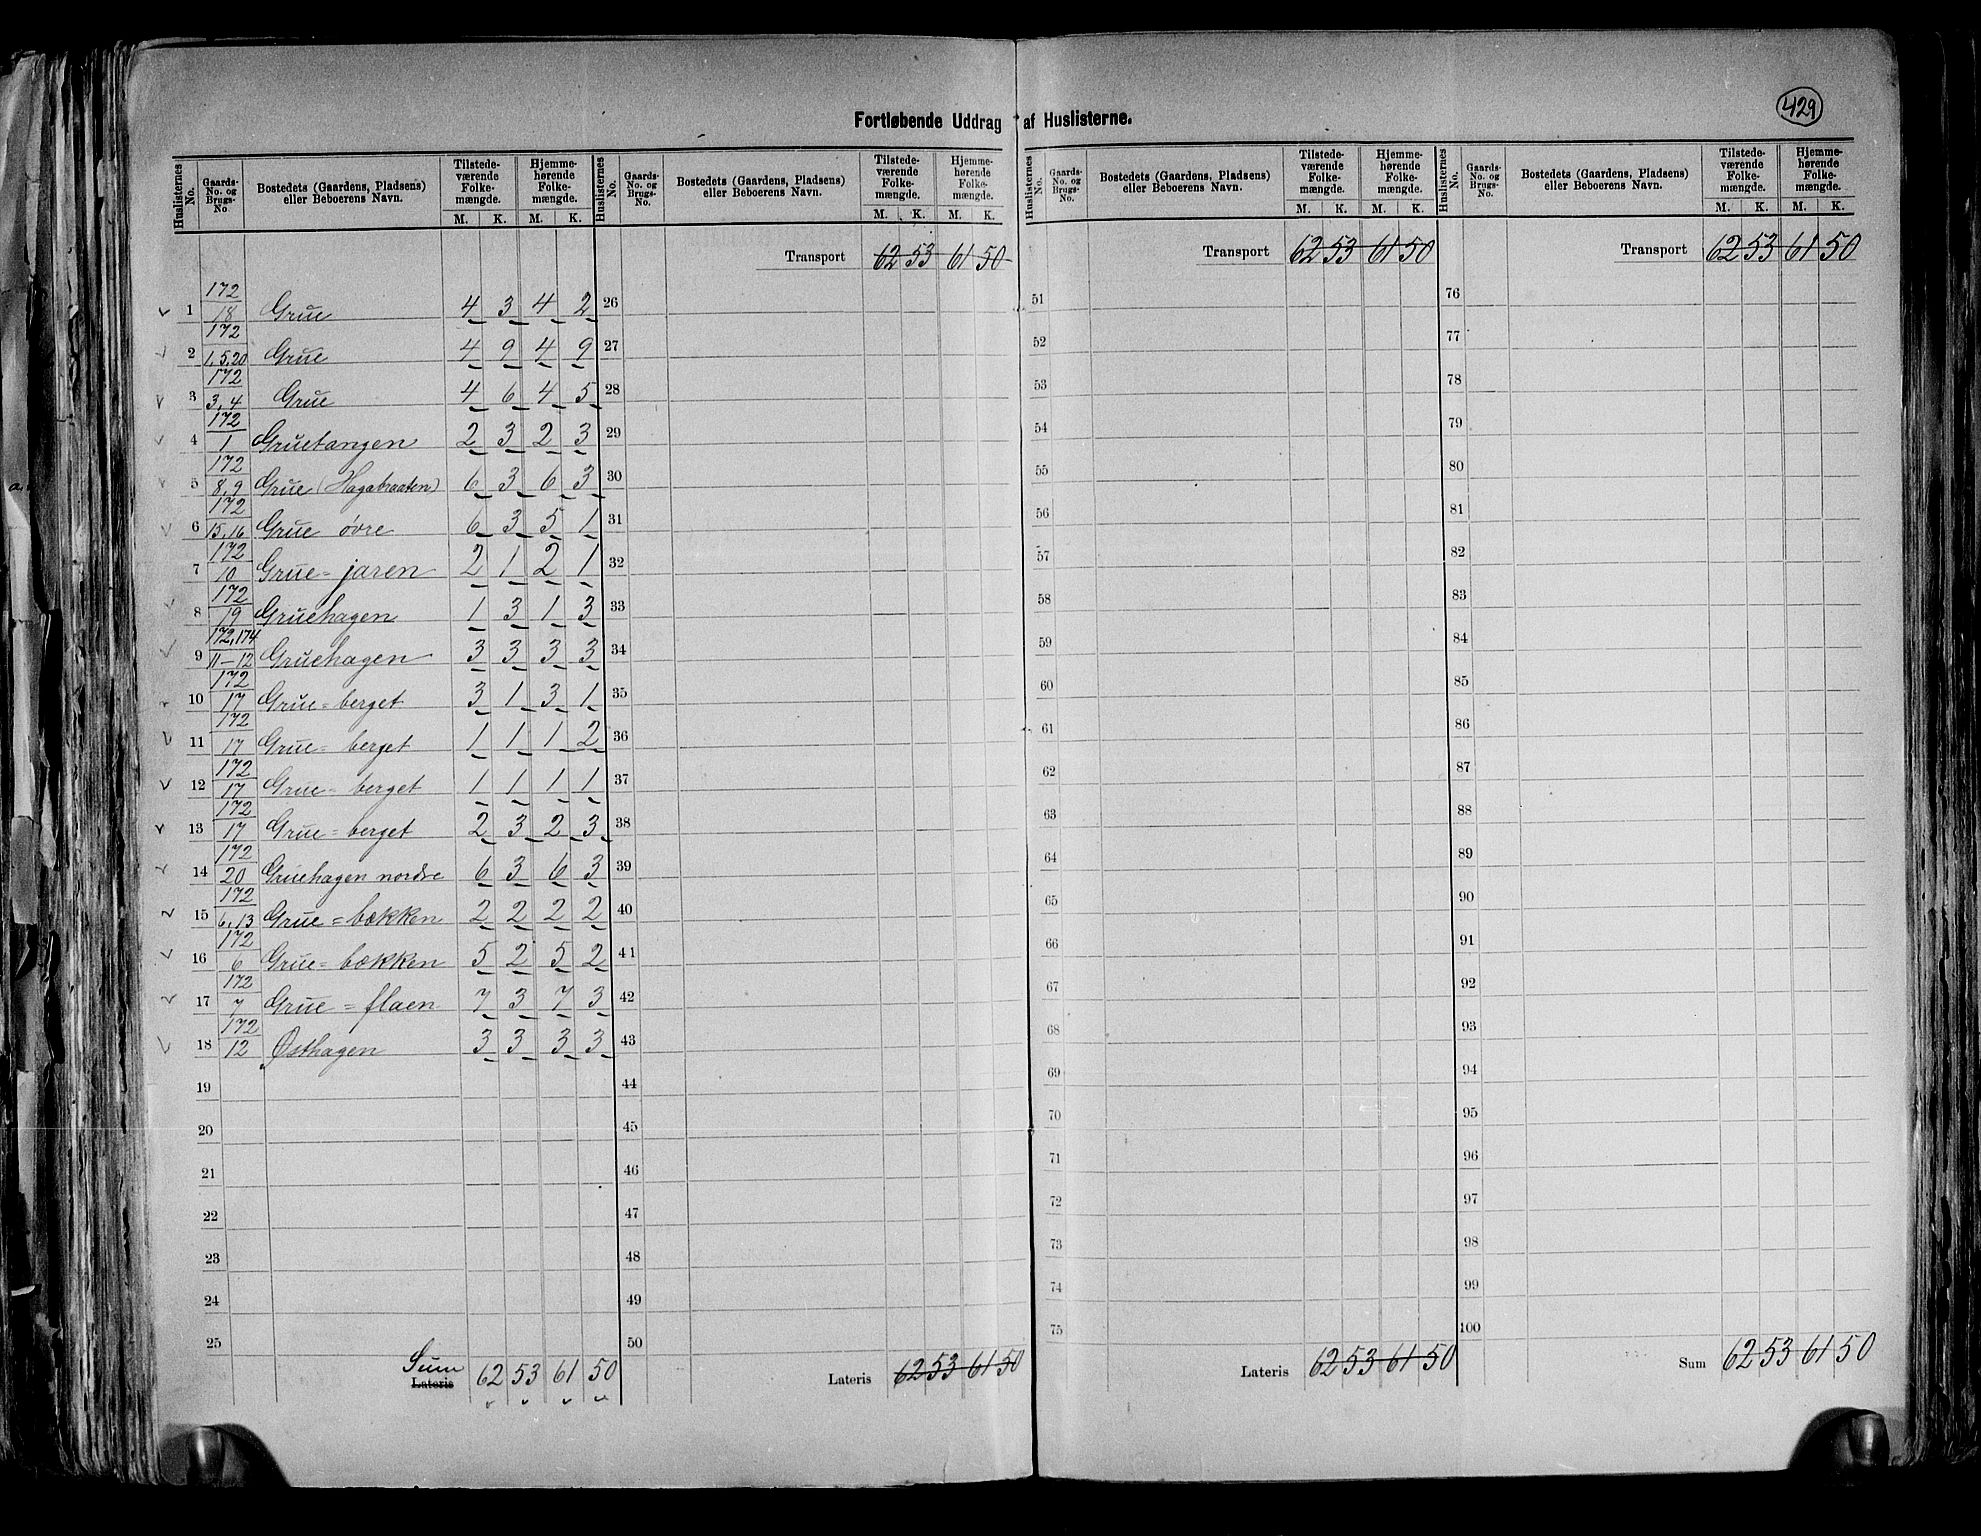 429
Fortløbende Uddrag af Huslisterne.
Huslisternes No. | Gaards-No. og Brugs-No. | Bostedets (Gaardens, Pladsens) eller Beboerens Navn. | Tilstedeværende Folkemængde. M. K. | Hjemmehørende Folkemængde. M. K.
Huslisternes No. | Gaards-No. og Brugs-No. | Bostedets (Gaardens, Pladsens) eller Beboerens Navn. | Tilstedeværende Folkemængde. M. K. | Hjemmehørende Folkemængde. M. K.
Huslisternes No. | Gaards-No. og Brugs-No. | Bostedets (Gaardens, Pladsens) eller Beboerens Navn. | Tilstedeværende Folkemængde. M. K. | Hjemmehørende Folkemængde. M. K.
Huslisternes No. | Gaards-No. og Brugs-No. | Bostedets (Gaardens, Pladsens) eller Beboerens Navn. | Tilstedeværende Folkemængde. M. K. | Hjemmehørende Folkemængde. M. K.
1 172/18 Grue 4 3 4 2
2 172/1,5,20 Grue 4 9 4 9
3 172/3,4 Grue 4 6 4 5
4 172/1 Gruetangen 2 3 2 3
5 172/8,9 Grue (Hagabraaten) 6 3 6 3
6 172/15,16 Grue övre 6 3 5 1
7 172/10 Grue=jaren 2 1 2 1
8 172/19 Gruehagen 1 3 1 3
9 172,174/11-12 Gruehagen 3 3 3 3
10 172/17 Grue=berget 3 1 3 1
11 172/17 Grue=berget 1 1 1 2
12 172/17 Grue=berget 1 1 1 1
13 172/17 Grue=berget 2 3 2 3
14 172/20 Gruehagen nordre 6 3 6 3
15 172/6,13 Grue=bækken 2 2 2 2
16 172/6 Grue=bækken 5 2 5 2
17 172/7 Grue=flaen 7 3 7 3
18 172/12 Østhagen 3 3 3 3
19
20
21
22
23
24
25
Sum
Lateris 62 53 61 50
Transport 62 53 61 50
26
27
28
29
30
31
32
33
34
35
36
37
38
39
40
41
42
43
44
45
46
47
48
49
50
Lateris 62 53 61 50
Transport 62 53 61 50
51
52
53
54
55
56
57
58
59
60
61
62
63
64
65
66
67
68
69
70
71
72
73
74
75
Lateris 62 53 61 50
Transport 62 53 61 50
76
77
78
79
80
81
82
83
84
85
86
87
88
89
90
91
92
93
94
95
96
97
98
99
100
Sum 62 53 61 50